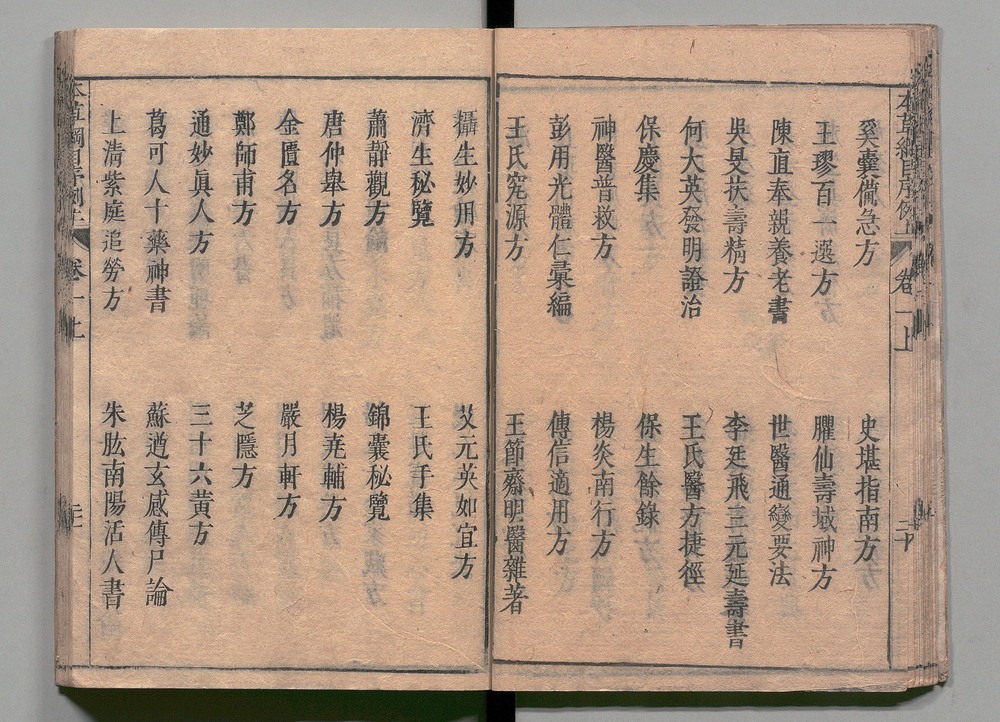 本草綱目序例上 卷一上 二十
奚囊備急方 史堪指南方
王璆百一選方 臞仙壽域神方
陳直奉親養老書 世醫通變要法
吳旻扶壽精方 李廷飛三元延壽書
何大英發明證治 王氏醫方捷徑
保慶集 保生餘錄
神醫普救方 楊炎南行方
彭用光體仁彙編 傳信適用方
王氏究源方 王節齋明醫雜著
攝生妙用方 艾元英如宜方
濟生秘覽 王氏手集
蕭靜觀方 錦囊秘覽
唐仲舉方 楊堯輔方
金匱名方 嚴月軒方
鄭師甫方 芝隱方
通妙眞人方 三十六黄方
葛可人十藥神書 蘇遒玄感傳尸論
上清紫庭追勞方 朱肱南陽活人書
本草綱目序例上 卷一上